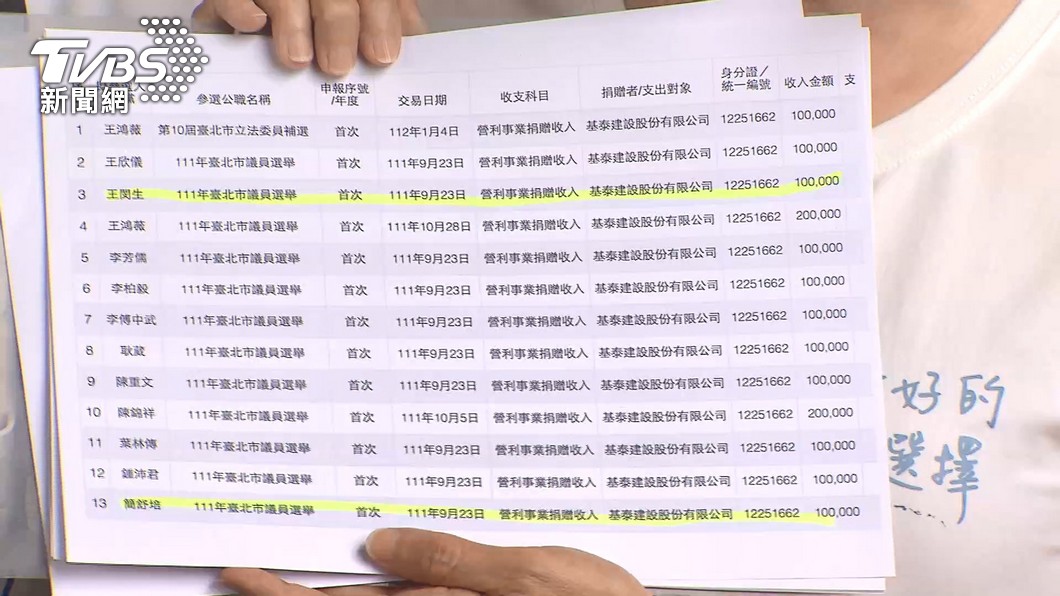 TVBS
新聞網
參選公職名稱 申報序號/年度 交易日期 收支科目 捐贈者/支出對象 身分證/統一編號 收入金額 支
1 王鴻薇 第10屆臺北市立法委員補選 首次 112年1月4日 營利事業捐贈收入 基泰建設股份有限公司 12251662 100,000
2 王欣儀 111年臺北市議員選舉 首次 111年9月23日 營利事業捐贈收入 基泰建設股份有限公司 12251662 100,000
3 王閔生 111年臺北市議員選舉 首次 111年9月23日 營利事業捐贈收入 基泰建設股份有限公司 12251662 100,000
4 王鴻薇 111年臺北市議員選舉 首次 111年10月28日 營利事業捐贈收入 基泰建設股份有限公司 12251662 200,000
5 李芳儒 111年臺北市議員選舉 首次 111年9月23日 營利事業捐贈收入 基泰建設股份有限公司 12251662 100,000
6 李柏毅 111年臺北市議員選舉 首次 111年9月23日 營利事業捐贈收入 基泰建設股份有限公司 12251662 100,000
7 李傅中武 111年臺北市議員選舉 首次 111年9月23日 營利事業捐贈收入 基泰建設股份有限公司 12251662 100,000
8 耿葳 111年臺北市議員選舉 首次 111年9月23日 營利事業捐贈收入 基泰建設股份有限公司 12251662 100,000
9 陳重文 111年臺北市議員選舉 首次 111年9月23日 營利事業捐贈收入 基泰建設股份有限公司 12251662 100,000
10 陳錦祥 111年臺北市議員選舉 首次 111年10月5日 營利事業捐贈收入 基泰建設股份有限公司 12251662 200,000
11 葉林傳 111年臺北市議員選舉 首次 111年9月23日 營利事業捐贈收入 基泰建設股份有限公司 12251662 100,000
12 鍾沛君 111年臺北市議員選舉 首次 111年9月23日 營利事業捐贈收入 基泰建設股份有限公司 12251662 100,000
13 簡舒培 111年臺北市議員選舉 首次 111年9月23日 營利事業捐贈收入 基泰建設股份有限公司 12251662 100,000
好的
選擇